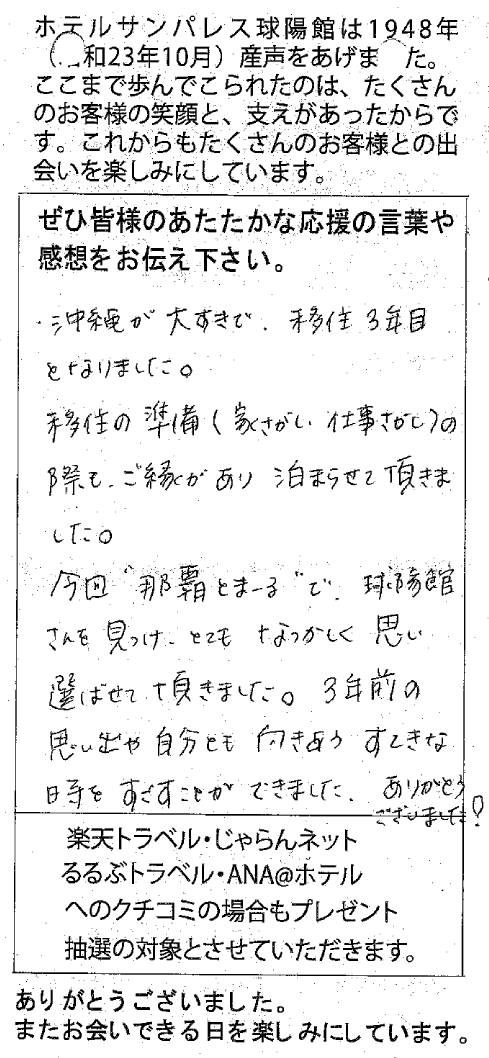 ホテルサンパレス球陽館は1948年
（　和23年10月）産声をあげま　た。
ここまで歩んでこられたのは、たくさん
のお客様の笑顔と、支えがあったからで
す。これからもたくさんのお客様との出
会いを楽しみにしています。
ぜひ皆様のあたたかな応援の言葉や
感想をお伝え下さい。
・沖縄が大すきで、移住3年目
となりました。
移住の準備(家さがし 仕事さがし)の
際も、ご縁があり 泊まらせて頂きま
した。
今回"那覇とまーる"で、球陽館
さんを見つけ、とても なつかしく 思い
選ばせて 頂きました。3年前の
思い出や自分とも 向きあう すてきな
時を すごすことが できました。ありがとう
ございました!
楽天トラベル・じゃらんネット
るるぶトラベル・ANA@ホテル
へのクチコミの場合もプレゼント
抽選の対象とさせていただきます。
ありがとうございました。
またお会いできる日を楽しみにしています。